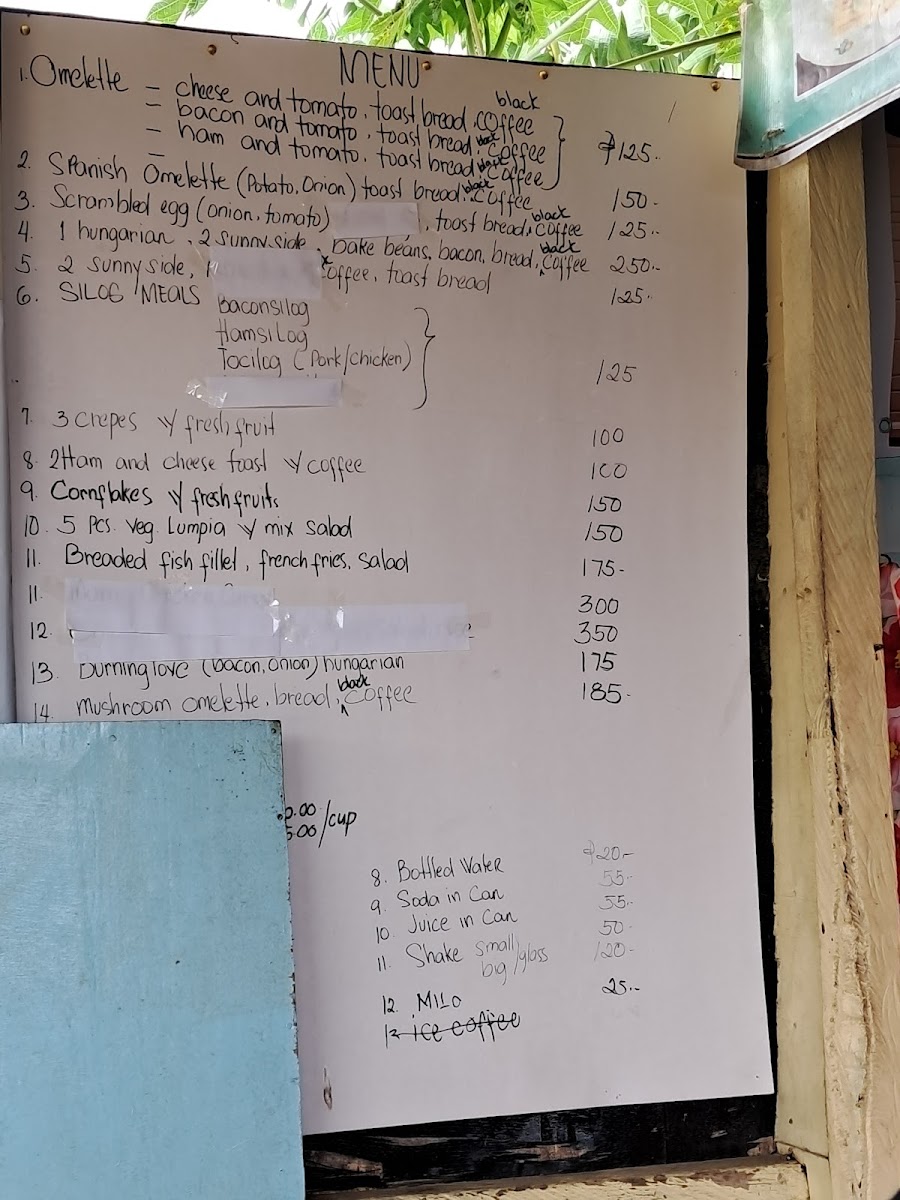 MENU
1. Omelette – cheese and tomato, toast bread, black coffee
– bacon and tomato, toast bread, black coffee
– ham and tomato, toast bread black coffee ₱125.-
2. Spanish Omelette (Potato, Onion) toast bread, black coffee 150-
3. Scrambled egg (onion, tomato) , toast bread, black coffee 125.-
4. 1 hungarian, 2 sunny side, bake beans, bacon, bread, black coffee 250.-
5. 2 sunny side, coffee, toast bread 125.-
6. SILOG MEALS Baconsilog
Hamsilog
Tocilog (Pork/chicken) 125
7. 3 crepes w/ fresh fruit 100
8. 2 Ham and cheese toast w/ coffee 100
9. Cornflakes w/ fresh fruits 150
10. 5 Pcs. Veg. Lumpia w/ mix salad 150
11. Breaded fish fillet, french fries, salad 175-
11. 300
12. 350
13. Burning love (bacon, onion) hungarian 175
14. mushroom omelette, bread, black coffee 185-
0.00
5.00 /cup
8. Bottled Water ₱20.-
9. Soda in Can 55.-
10. Juice in Can 55.-
11. Shake small 50-
big /glass 120-
12. MILO 25.-
13 ice coffee